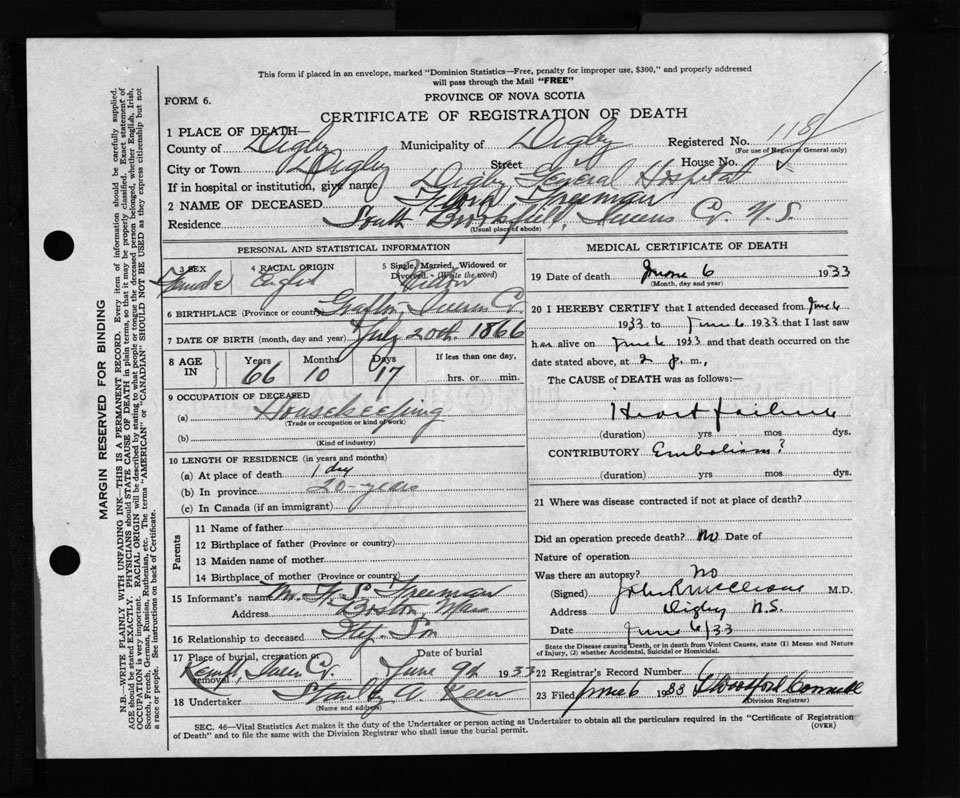 This form if placed in an envelope, marked "Dominion Statistics—Free, penalty for improper use, $300," and properly addressed
will pass through the Mail "FREE"
FORM 6.
PROVINCE OF NOVA SCOTIA
CERTIFICATE OF REGISTRATION OF DEATH
1 PLACE OF DEATH—
County of Digby Municipality of Digby Registered No. 118
(For use of Registrar General only)
City or Town Digby Street House No.
If in hospital or institution, give name Digby General Hospital
2 NAME OF DECEASED Freeman
Residence South Brookfield, Queens Co. N.S.
(Usual place of abode)
PERSONAL AND STATISTICAL INFORMATION
3 SEX 4 RACIAL ORIGIN 5 Single, Married, Widowed or
Divorced. (Write the word)
Female
6 BIRTHPLACE (Province or country) Grafton, Queens Co.
7 DATE OF BIRTH (month, day and year) July 20th. 1866
8 AGE IN Years Months Days If less than one day,
66 10 17 hrs. or min.
9 OCCUPATION OF DECEASED
(a) Housekeeping
(Trade or occupation or kind of work)
(b)
(Kind of industry)
10 LENGTH OF RESIDENCE (in years and months)
(a) At place of death 1 day
(b) In province 20-years
(c) In Canada (if an immigrant)
Parents
11 Name of father
12 Birthplace of father (Province or country)
13 Maiden name of mother
14 Birthplace of mother (Province or country)
15 Informant's name S. Freeman
Address Boston, Mass
16 Relationship to deceased Step-Son
17 Place of burial, cremation or removal Date of burial
Kempt, Queens Co. June 9th 1933
18 Undertaker A.
(Name and address)
MEDICAL CERTIFICATE OF DEATH
19 Date of death June 6 1933
(Month, day and year)
20 I HEREBY CERTIFY that I attended deceased from June 6
1933 to June 6 1933 that I last saw
her alive on June 6 1933 and that death occurred on the
date stated above, at 2 p.m.,
The CAUSE of DEATH was as follows:—
Heart failure
(duration) yrs mos dys.
CONTRIBUTORY Embolism?
(duration) yrs mos dys.
21 Where was disease contracted if not at place of death?
Did an operation precede death? no Date of
Nature of operation
Was there an autopsy? No
(Signed) John R M.D.
Address Digby N.S.
Date June 6/33
State the Disease causing Death, or in death from Violent Causes, state (1) Means and Nature
of Injury, (2) whether Accidental, Suicidal or Homicidal.
22 Registrar's Record Number
23 Filed June 6 1933
(Division Registrar)
SEC. 46—Vital Statistics Act makes it the duty of the Undertaker or person acting as Undertaker to obtain all the particulars required in the "Certificate of Registration
of Death" and to file the same with the Division Registrar who shall issue the burial permit. (OVER)
MARGIN RESERVED FOR BINDING
N.B.—WRITE PLAINLY WITH UNFADING INK—THIS IS A PERMANENT RECORD. Every item of information should be carefully supplied.
AGE should be stated EXACTLY. PHYSICIANS should STATE CAUSE OF DEATH in plain terms, so that it may be properly classified. Exact statement of
OCCUPATION is very important. RACIAL ORIGIN will be described by stating to what people or tongue the deceased person belonged, whether English, Irish,
Scotch, French, German, Russian, Ruthenian, etc. The terms "AMERICAN" or "CANADIAN" SHOULD NOT BE USED as they express citizenship but not
a race or people. See instructions on back of Certificate.